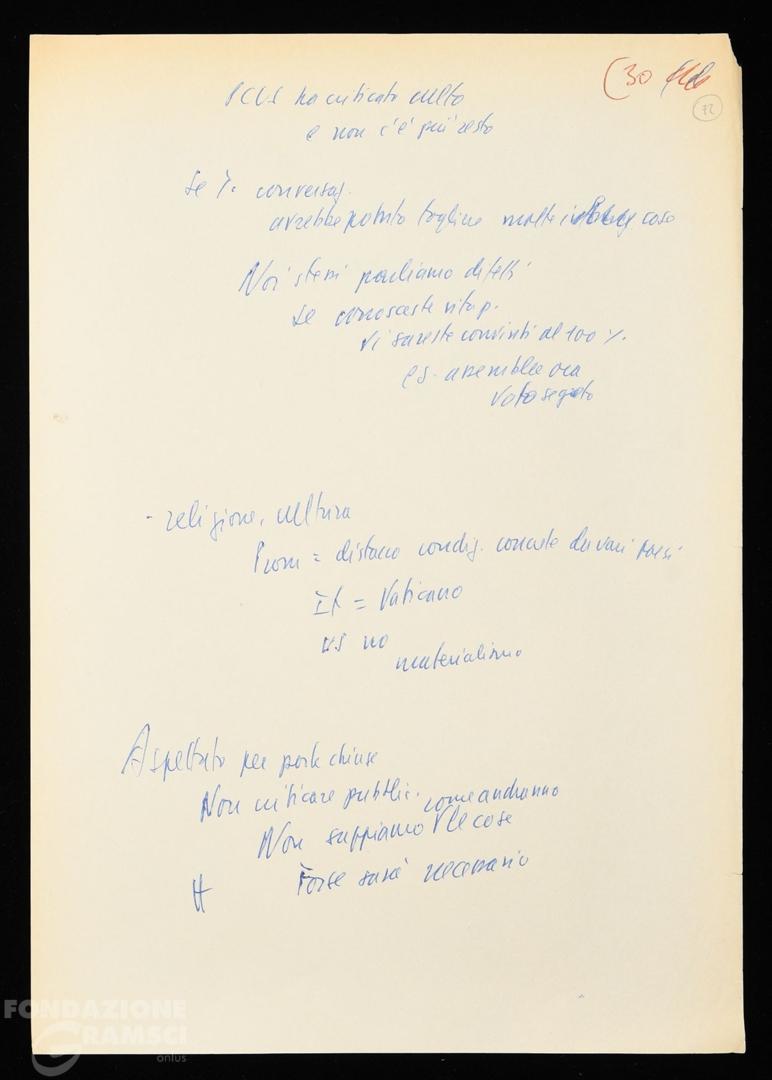 (30
72
PCUS ha criticato culto
e non c'è più resto
Se T. conversaz.
avrebbe potuto togliere molte cose
Noi stessi parliamo difetti
se conosceste vita p.
vi sareste convinti al 100 %.
es. assemblea ora
voto segreto
- religione, cultura
Prom = distacco condiz. concrete dei vari paesi
It = Vaticano
US no
materialismo
Aspettato per porte chiuse
Non criticare pubblic.
Non sappiamo come andranno le cose
Forse sarà necessario
H
FONDAZIONE
GRAMSCI
onlus